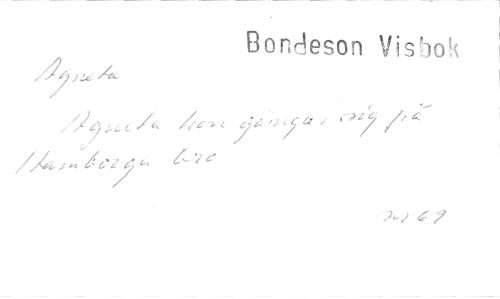 Bondeson Visbok
Agneta
Agneta hon gångar sig på
Hamborga bro
nr 69